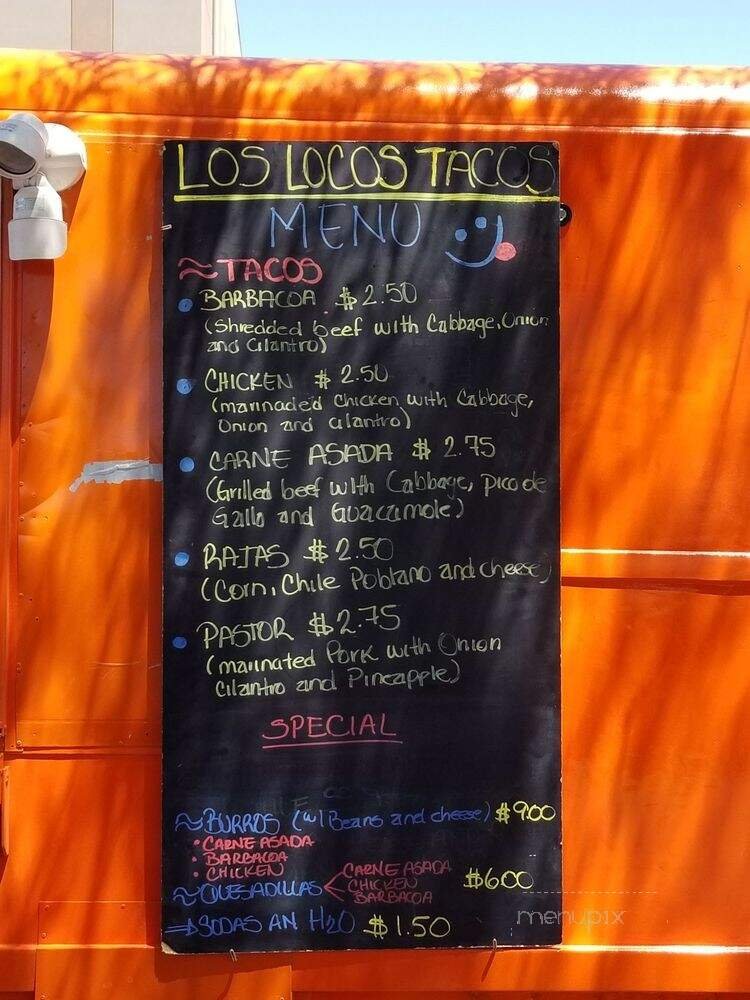 LOS LOCOS TACOS
MENU
≈TACOS
• BARBACOA $2.50
(Shredded beef with Cabbage, Onion
and Cilantro)
• CHICKEN $2.50
(marinaded Chicken with Cabbage,
Onion and cilantro)
• CARNE ASADA $2.75
(Grilled beef with Cabbage, pico de
Gallo and Guacamole)
• RAJAS $2.50
(Corn, Chile Poblano and cheese)
• PASTOR $2.75
(marinated Pork with Onion
Cilantro and Pineapple)
SPECIAL
~BURROS (w/ Beans and cheese) $9.00
• CARNE ASADA
• BARBACOA
• CHICKEN
≈QUESADILLAS < CARNE ASADA $6.00
CHICKEN
BARBACOA
⇒SODAS AN H2O $1.50
menupix